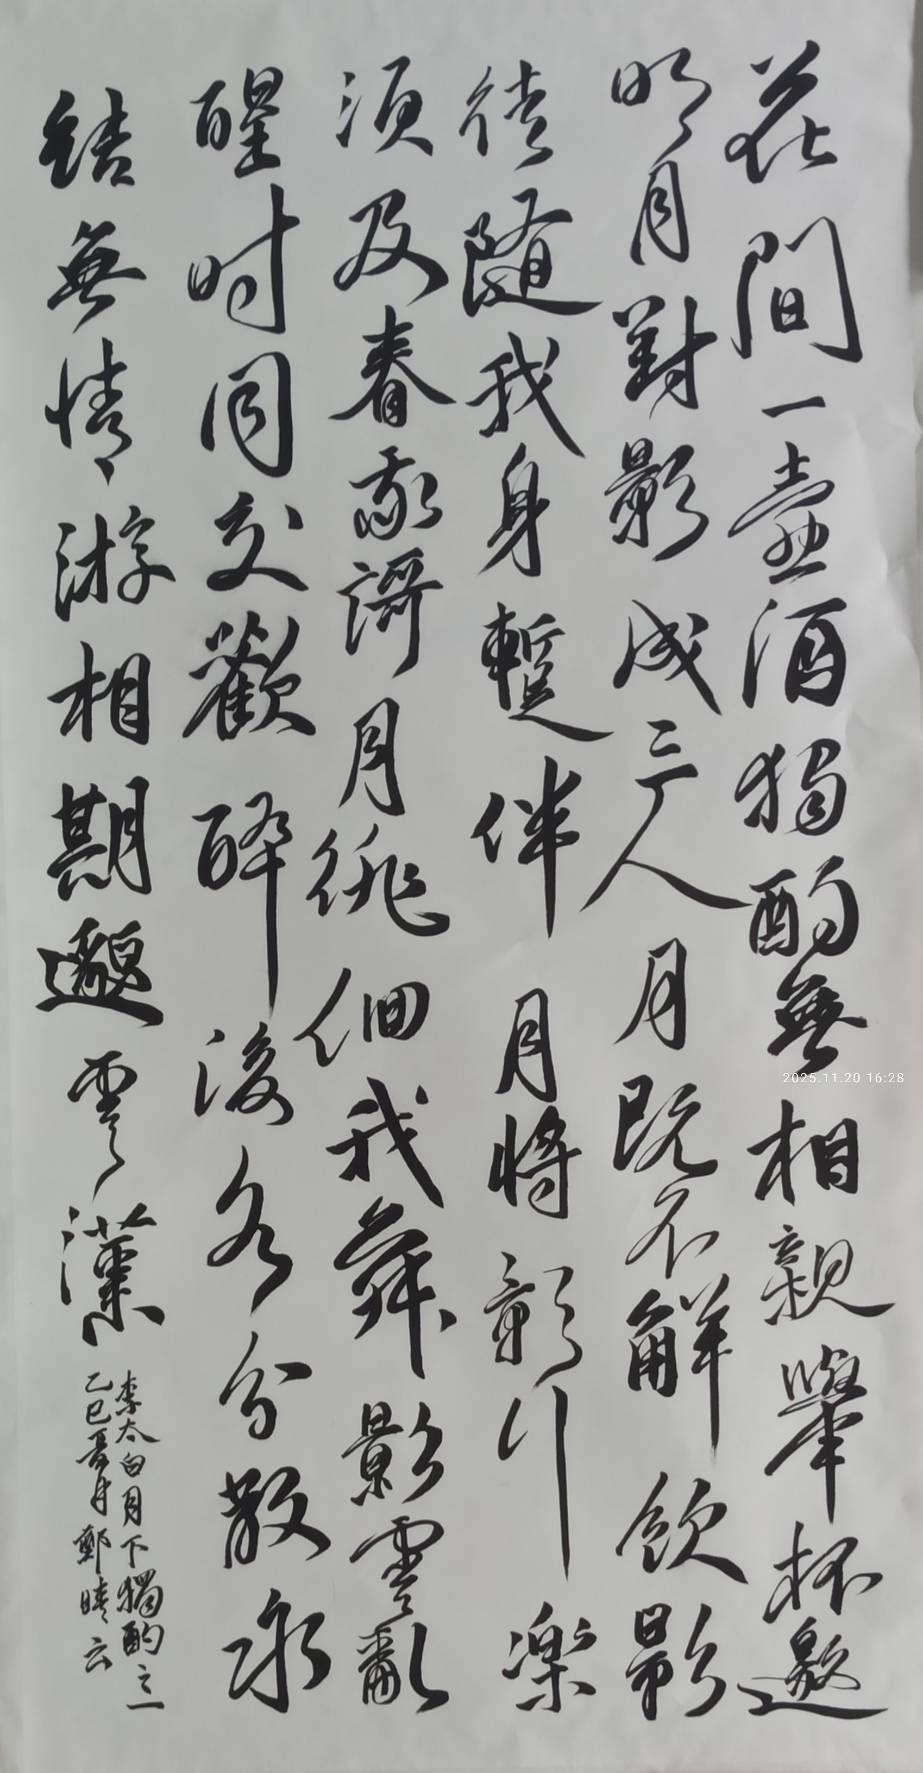 花間一壺酒獨酌無相親舉杯邀
明月對影成三人月既不解飲影
徒隨我身暫伴月將影行樂
須及春我謌月徘徊我舞影零亂
醒时同交歡醉後各分散永
結無情游相期邈雲漢
李太白月下獨酌之一
乙巳 月 鄭 云
2025.11.20 16:28